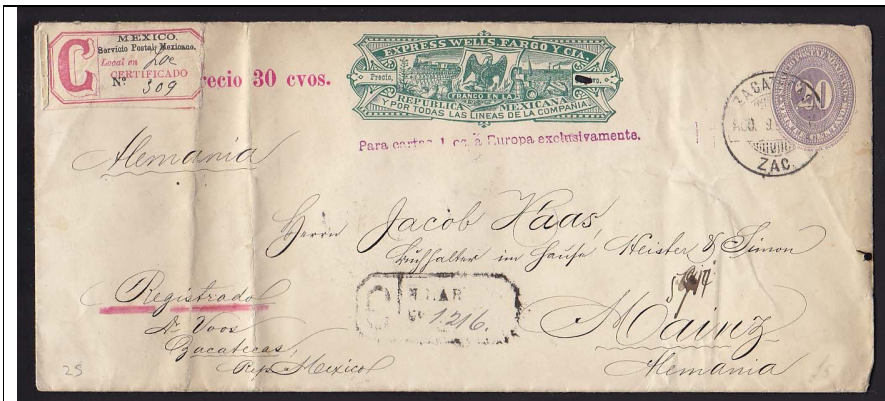 MEXICO.
Servicio Postal Mexicano.
Local en Zac
C CERTIFICADO
Nº 309
recio 30 cvos.
EXPRESS WELLS, FARGO Y CIA
Precio,
FRANCO EN LA
REPUBLICA MEXICANA
Y POR TODAS LAS LINEAS DE LA COMPAÑIA
Para cartas 1 oz. á Europa exclusivamente.
ZACATECAS
AGO. 9
ZAC.
Alemania
Herrn Jacob Haas,
Buchhalter im Hause Heister & Simon
Mainz
Alemania
Registrado
A. Voos
Zacatecas,
Rep. Mexico
C
1216.
25